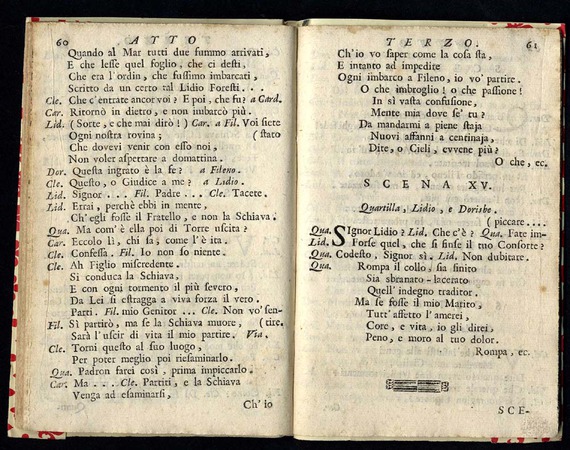 60 ATTO
Quando al Mar tutti due fummo arrivati,
E che lesse quel foglio, che ci desti,
Che era l'ordin, che fussimo imbarcati,
Scritto da un certo tal Lidio Foresti. . .
Cle. Che c'entrate ancor voi? E poi, che fu? a Card.
Car. Ritornò in dietro, e non imbarcò più.
Lid. ( Sorte, e che mai dirò! ) Car. a Fil. Voi siete
Ogni nostra rovina; ( stato
Che dovevi venir con esso noi,
Non voler aspettare a domattina.
Dor. Questa ingrato è la fe? a Fileno.
Cle. Questo, o Giudice a me? a Lidio.
Lid. Signor . . . Fil. Padre . . . Cle. Tacete.
Lid. Errai, perchè ebbi in mente,
Ch'egli fosse il Fratello, e non la Schiava.
Qua. Ma com'è ella poi di Torre uscita?
Car. Eccolo lì, chi sa, come l'è ita.
Cle. Confessa. Fil. Io non so niente.
Cle. Ah Figlio miscredente.
Si conduca la Schiava,
E con ogni tormento il più severo,
Da Lei si estragga a viva forza il vero.
Parti. Fil. mio Genitor . . . Cle. Non vo' sen-
Fil. Sì partirò, ma se la Schiava muore, ( tire.
Sarà l'uscir di vita il mio partire. Via.
Cle. Torni questo al suo luogo,
Per poter meglio poi riesaminarlo.
Qua. Padron farei così, prima impiccarlo.
Car. Ma . . . Cle. Partiti, e la Schiava
Venga ad esaminarsi,
Ch'io
TERZO. 61
Ch'io vo saper come la cosa sta,
E intanto ad impedite
Ogni imbarco a Fileno, io vo' partire.
O che imbroglio! o che passione!
In sì vasta confusione,
Mente mia dove se' tu?
Da mandarmi a piene staja
Nuovi affanni a centinaja,
Dite, o Cieli, evvene più?
O che, ec.
SCENA XV.
Quartilla, Lidio, e Dorisbe.
( piccare. . . .
Qua. SIgnor Lidio? Lid. Che c'è? Qua. Fate im-
Lid. Forse quel, che si finse il tuo Consorte?
Qua. Codesto, Signor sì. Lid. Non dubitare.
Qua. Rompa il collo, sia finito
Sia sbranato - lacerato
Quell' indegno traditor.
Ma se fosse il mio Marito,
Tutt' affetto l'amerei,
Core, e vita, io gli direi,
Peno, e moro al tuo dolor.
Rompa, ec.
SCE-